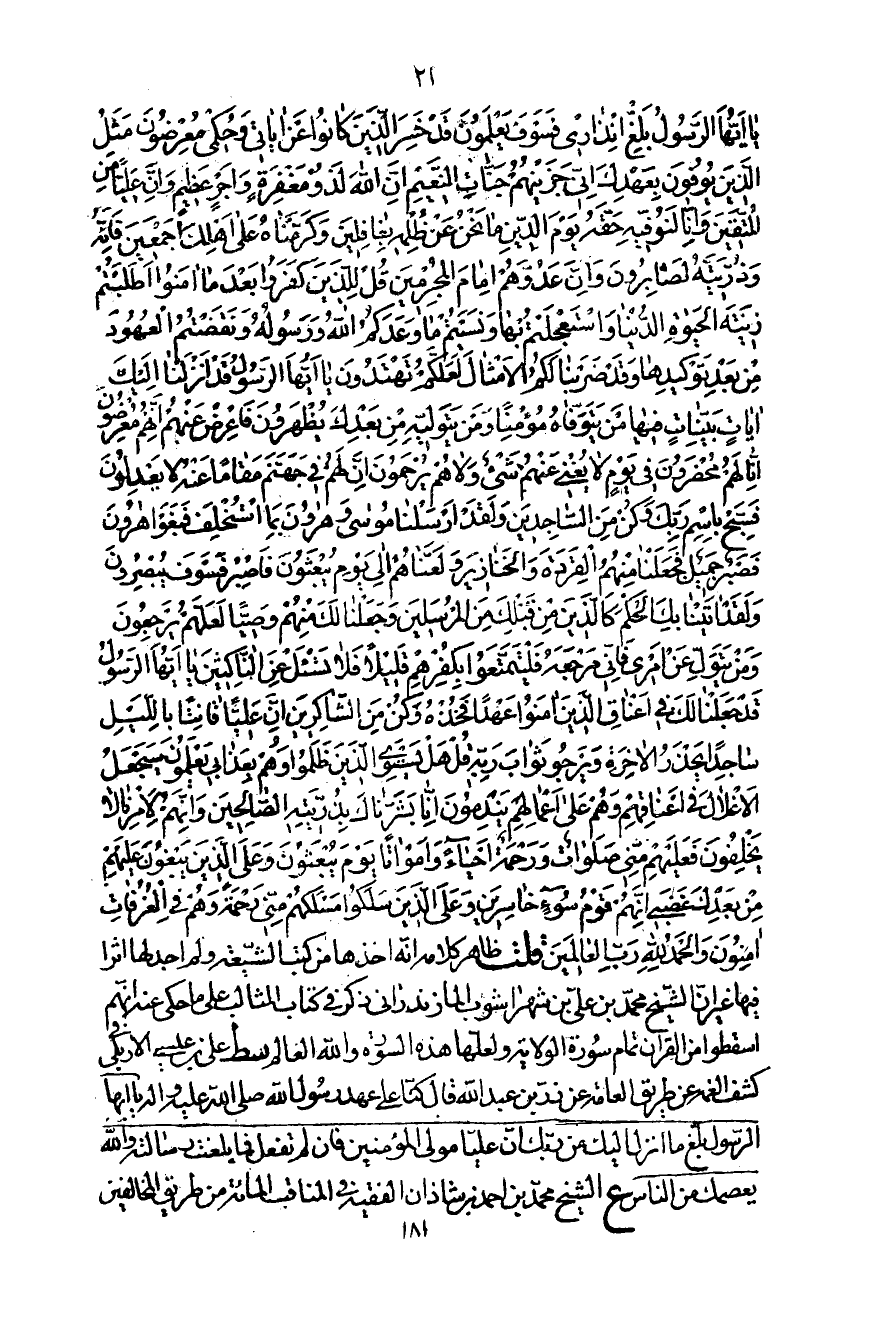 ٢١
يَا اَيُّهَا الرَّسُولُ بَلِّغْ اِنْذَارِى فَسَوْفَ يَعْلَمُونَ قَدْ خَسِرَ الَّذِينَ كَانُوا عَنْ اٰيَاتِى وَحُكْمِى مُعْرِضُونَ مَثَلُ
الَّذِينَ يُوفُونَ بِعَهْدِكَ اِنِّى جَزَيْتُهُمْ جَنَّاتِ النَّعِيمِ اِنَّ اللّٰهَ لَذُو مَغْفِرَةٍ وَاَجْرٍ عَظِيمٍ وَاِنَّ عَلِيًّا مِنَ
الْمُتَّقِينَ وَاِنَّا لَنُوَفِّيهِ حَقَّهُ يَوْمَ الدِّينِ مَا نَحْنُ عَنْ ظُلْمِهِ بِغَافِلِينَ وَكَرَّمْنَاهُ عَلٰى اَهْلِكَ اَجْمَعِينَ فَاِنَّهُ
وَذُرِّيَّتَهُ لَصَابِرُونَ وَاِنَّ عَدُوَّهُمْ اِمَامَ الْمُجْرِمِينَ قُلْ لِلَّذِينَ كَفَرُوا بَعْدَ مَا اٰمَنُوا اَطَلَبْتُمْ
زِينَةَ الْحَيٰوةِ الدُّنْيَا وَاسْتَعْجَلْتُمْ بِهَا وَنَسِيتُمْ مَا وَعَدَكُمُ اللّٰهُ وَرَسُولُهُ وَنَقَضْتُمُ الْعُهُودَ
مِنْ بَعْدِ تَوْكِيدِهَا وَقَدْ ضَرَبْنَا لَكُمُ الْاَمْثَالَ لَعَلَّكُمْ تَهْتَدُونَ يَا اَيُّهَا الرَّسُولُ قَدْ اَنْزَلْنَا اِلَيْكَ
اٰيَاتٍ بَيِّنَاتٍ فِيهَا مَنْ يَتَوَفَّاهُ مُؤْمِنًا وَمَنْ يَتَوَلَّيْهِ مِنْ بَعْدِكَ يُظْهَرُونَ فَاَعْرِضْ عَنْهُمْ اِنَّهُمْ مُعْرِضُونَ
اِنَّا لَهُمْ مُحْضَرُونَ فِى يَوْمٍ لَا يُغْنِى عَنْهُمْ شَىْءٌ وَلَا هُمْ يُرْحَمُونَ اِنَّ لَهُمْ فِى جَهَنَّمَ مَقَامًا عَنْهُ لَا يَعْدِلُونَ
فَسَبِّحْ بِاسْمِ رَبِّكَ وَكُنْ مِنَ السَّاجِدِينَ وَلَقَدْ اَرْسَلْنَا مُوسٰى وَهٰرُونَ بِمَا اسْتُخْلِفَ فَبَغَوْا هٰرُونَ
فَصَبْرٌ جَمِيلٌ فَجَعَلْنَا مِنْهُمُ الْقِرَدَةَ وَالْخَنَازِيرَ وَلَعَنَّاهُمْ اِلٰى يَوْمِ يُبْعَثُونَ فَاصْبِرْ فَسَوْفَ يُبْصِرُونَ
وَلَقَدْ اٰتَيْنَا بِكَ الْحُكْمَ كَالَّذِينَ مِنْ قَبْلِكَ مِنَ الْمُرْسَلِينَ وَجَعَلْنَا لَكَ مِنْهُمْ وَصِيًّا لَعَلَّهُمْ يَرْجِعُونَ
وَمَنْ يَتَوَلَّ عَنْ اَمْرِى فَاِنِّى مَرْجِعُهُ فَلْيَتَمَتَّعُوا بِكُفْرِهِمْ قَلِيلًا فَلَا تَسْئَلْ عَنِ النَّاكِثِينَ يَا اَيُّهَا الرَّسُولُ
قَدْ جَعَلْنَا لَكَ فِى اَعْنَاقِ الَّذِينَ اٰمَنُوا عَهْدًا فَخُذْهُ وَكُنْ مِنَ الشَّاكِرِينَ اِنَّ عَلِيًّا قَانِتًا بِاللَّيْلِ
سَاجِدًا يَحْذَرُ الْاٰخِرَةَ وَيَرْجُو ثَوَابَ رَبِّهِ قُلْ هَلْ يَسْتَوِى الَّذِينَ ظَلَمُوا وَهُمْ بِعَذَابِى يَعْلَمُونَ سَيُجْعَلُ
الْاَغْلَالُ فِى اَعْنَاقِهِمْ وَهُمْ عَلٰى اَعْمَالِهِمْ يَنْدَمُونَ اِنَّا بَشَّرْنَاكَ بِذُرِّيَّتِهِ الصَّالِحِينَ وَاِنَّهُمْ لِاَمْرِنَا لَا
يَخْلِفُونَ فَعَلَيْهِمْ مِنِّى صَلَوَاتٌ وَرَحْمَةٌ اَحْيَاءً وَاَمْوَاتًا يَوْمَ يُبْعَثُونَ وَعَلَى الَّذِينَ يَبْغُونَ عَلَيْهِمْ
مِنْ بَعْدِكَ غَضَبِى اِنَّهُمْ قَوْمُ سَوْءٍ خَاسِرِينَ وَعَلَى الَّذِينَ سَلَكُوا مَسْلَكَهُمْ مِنِّى رَحْمَةٌ وَهُمْ فِى الْغُرُفَاتِ
اٰمِنُونَ وَالْحَمْدُ لِلّٰهِ رَبِّ الْعَالَمِينَ قلت ظاهر كلامه انه اخذها من كتب الشيعة ولم اجد لها اثرا
فيها غير ان الشيخ محمد بن على بن شهراشوب المازندرانى ذكر فى كتاب المثالب على ما حكى عنه انهم
اسقطوا من القرآن تمام سورة الولاية ولعلها هذه السورة والله العالم سط على بن عيسى الاربلى فى
كشف الغمة عن طريق العامة عن زر بن عبد الله قال كنا على عهد رسول الله صلى الله عليه واله يا ايها
الرسول بلغ ما انزل اليك من ربك ان عليا مولى المؤمنين فان لم تفعل فما بلغت رسالته والله
يعصمك من الناس ع الشيخ محمد بن احمد بن شاذان الفقيه فى المناقب المائة من طريق المخالفين
١٨١